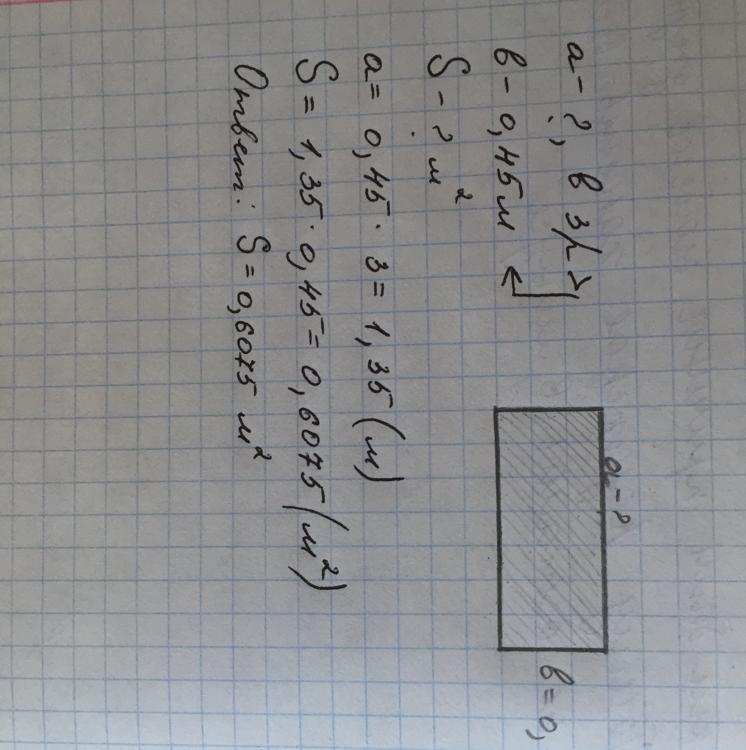 a - ?, в 3р >
в - 0,45 м
S - ? м²
a = 0,45 · 3 = 1,35 (м)
S = 1,35 · 0,45 = 0,6075 (м²)
Ответ: S = 0,6075 м²
a - ?
в = 0,